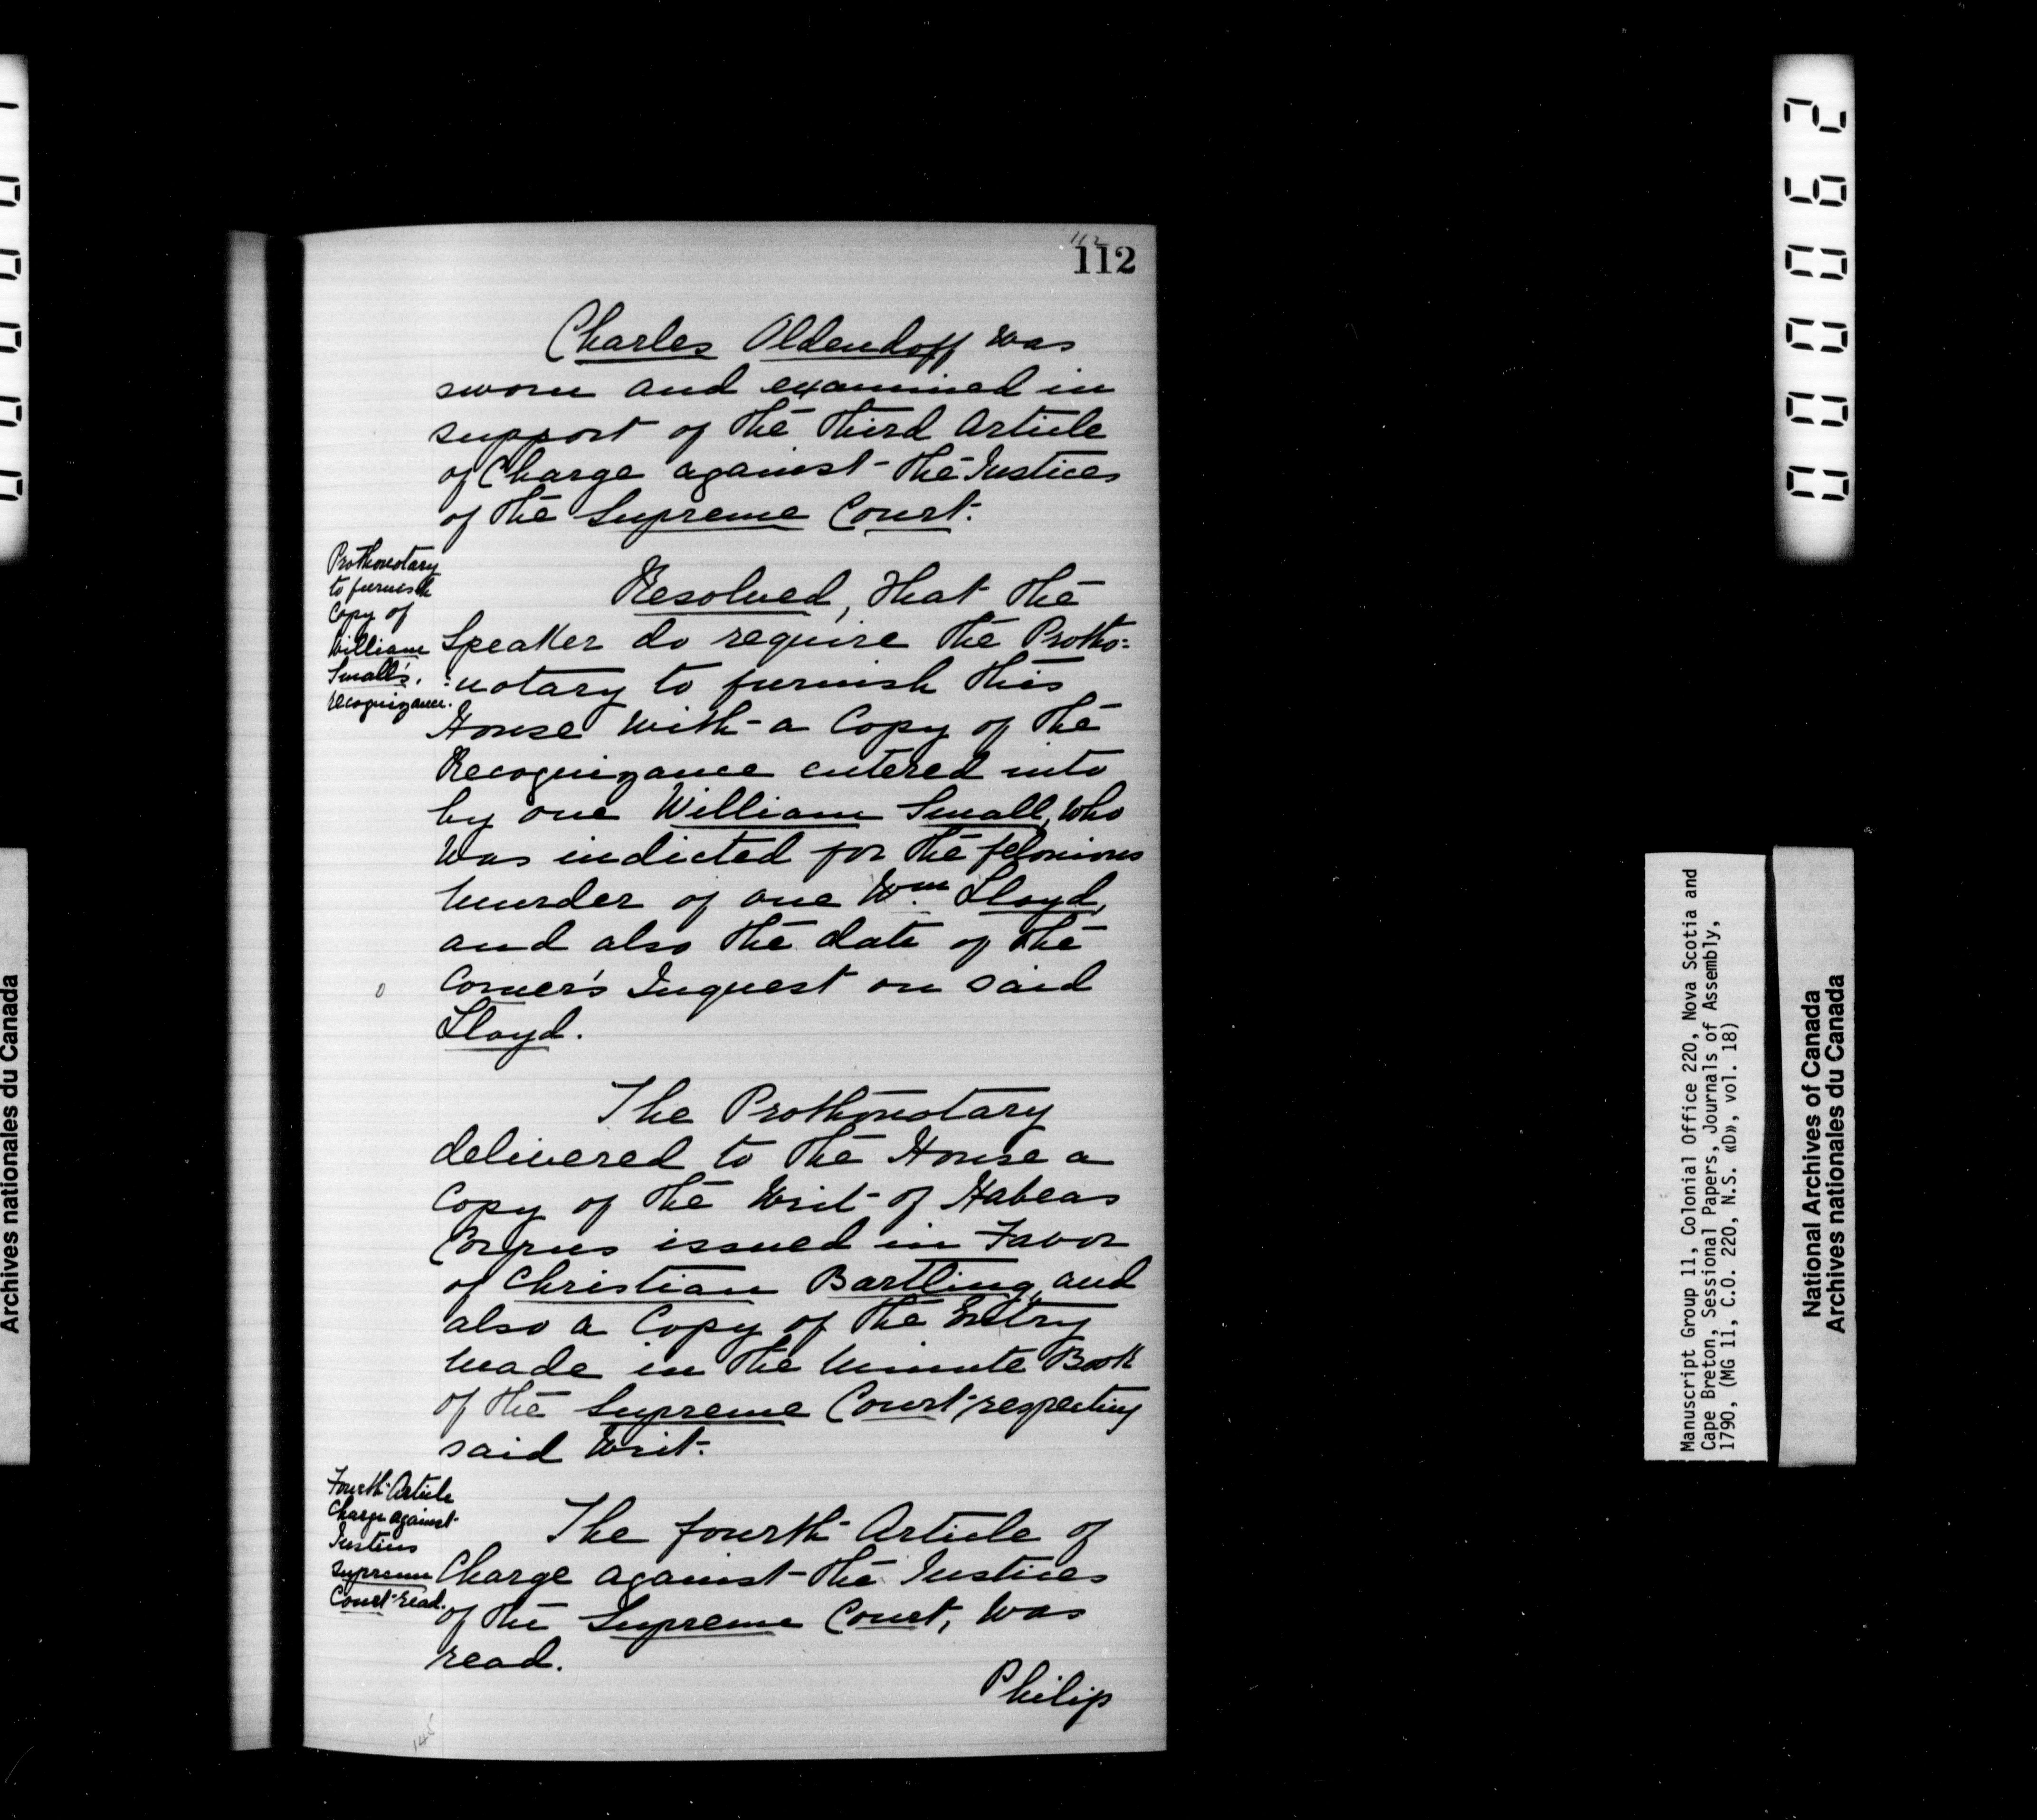 112
112
Charles Oldendoff was
sworn and examined in
support of the third Article
of Charge against the Justices
of the Supreme Court.
Prothonotary
to furnish
Copy of
William
Small's.
recognizance.
Resolved, that the
Speaker do require the Protho=
:notary to furnish this
House with a Copy of the
Recognizance entered into
by one William Small, who
was indicted for the felonious
murder of one Wm. Lloyd,
and also the date of the
Corner's Inquest on said
Lloyd.
The Prothonotary
delivered to the House a
Copy of the Writ of Habeas
Corpus issued in Favor
of Christian Bartling, and
also a Copy of the Entry
made in the Minute Book
of the Supreme Court respecting
said Writ.
Fourth Article
Charge against
Justices
Supreme
Court read.
The fourth Article of
Charge against the Justices
of the Supreme Court, was
read.
Philip
145
000062
Manuscript Group 11, Colonial Office 220, Nova Scotia and
Cape Breton, Sessional Papers, Journals of Assembly,
1790, (MG 11, C.O. 220, N.S. «D», vol. 18)
National Archives of Canada
Archives nationales du Canada
Archives nationales du Canada